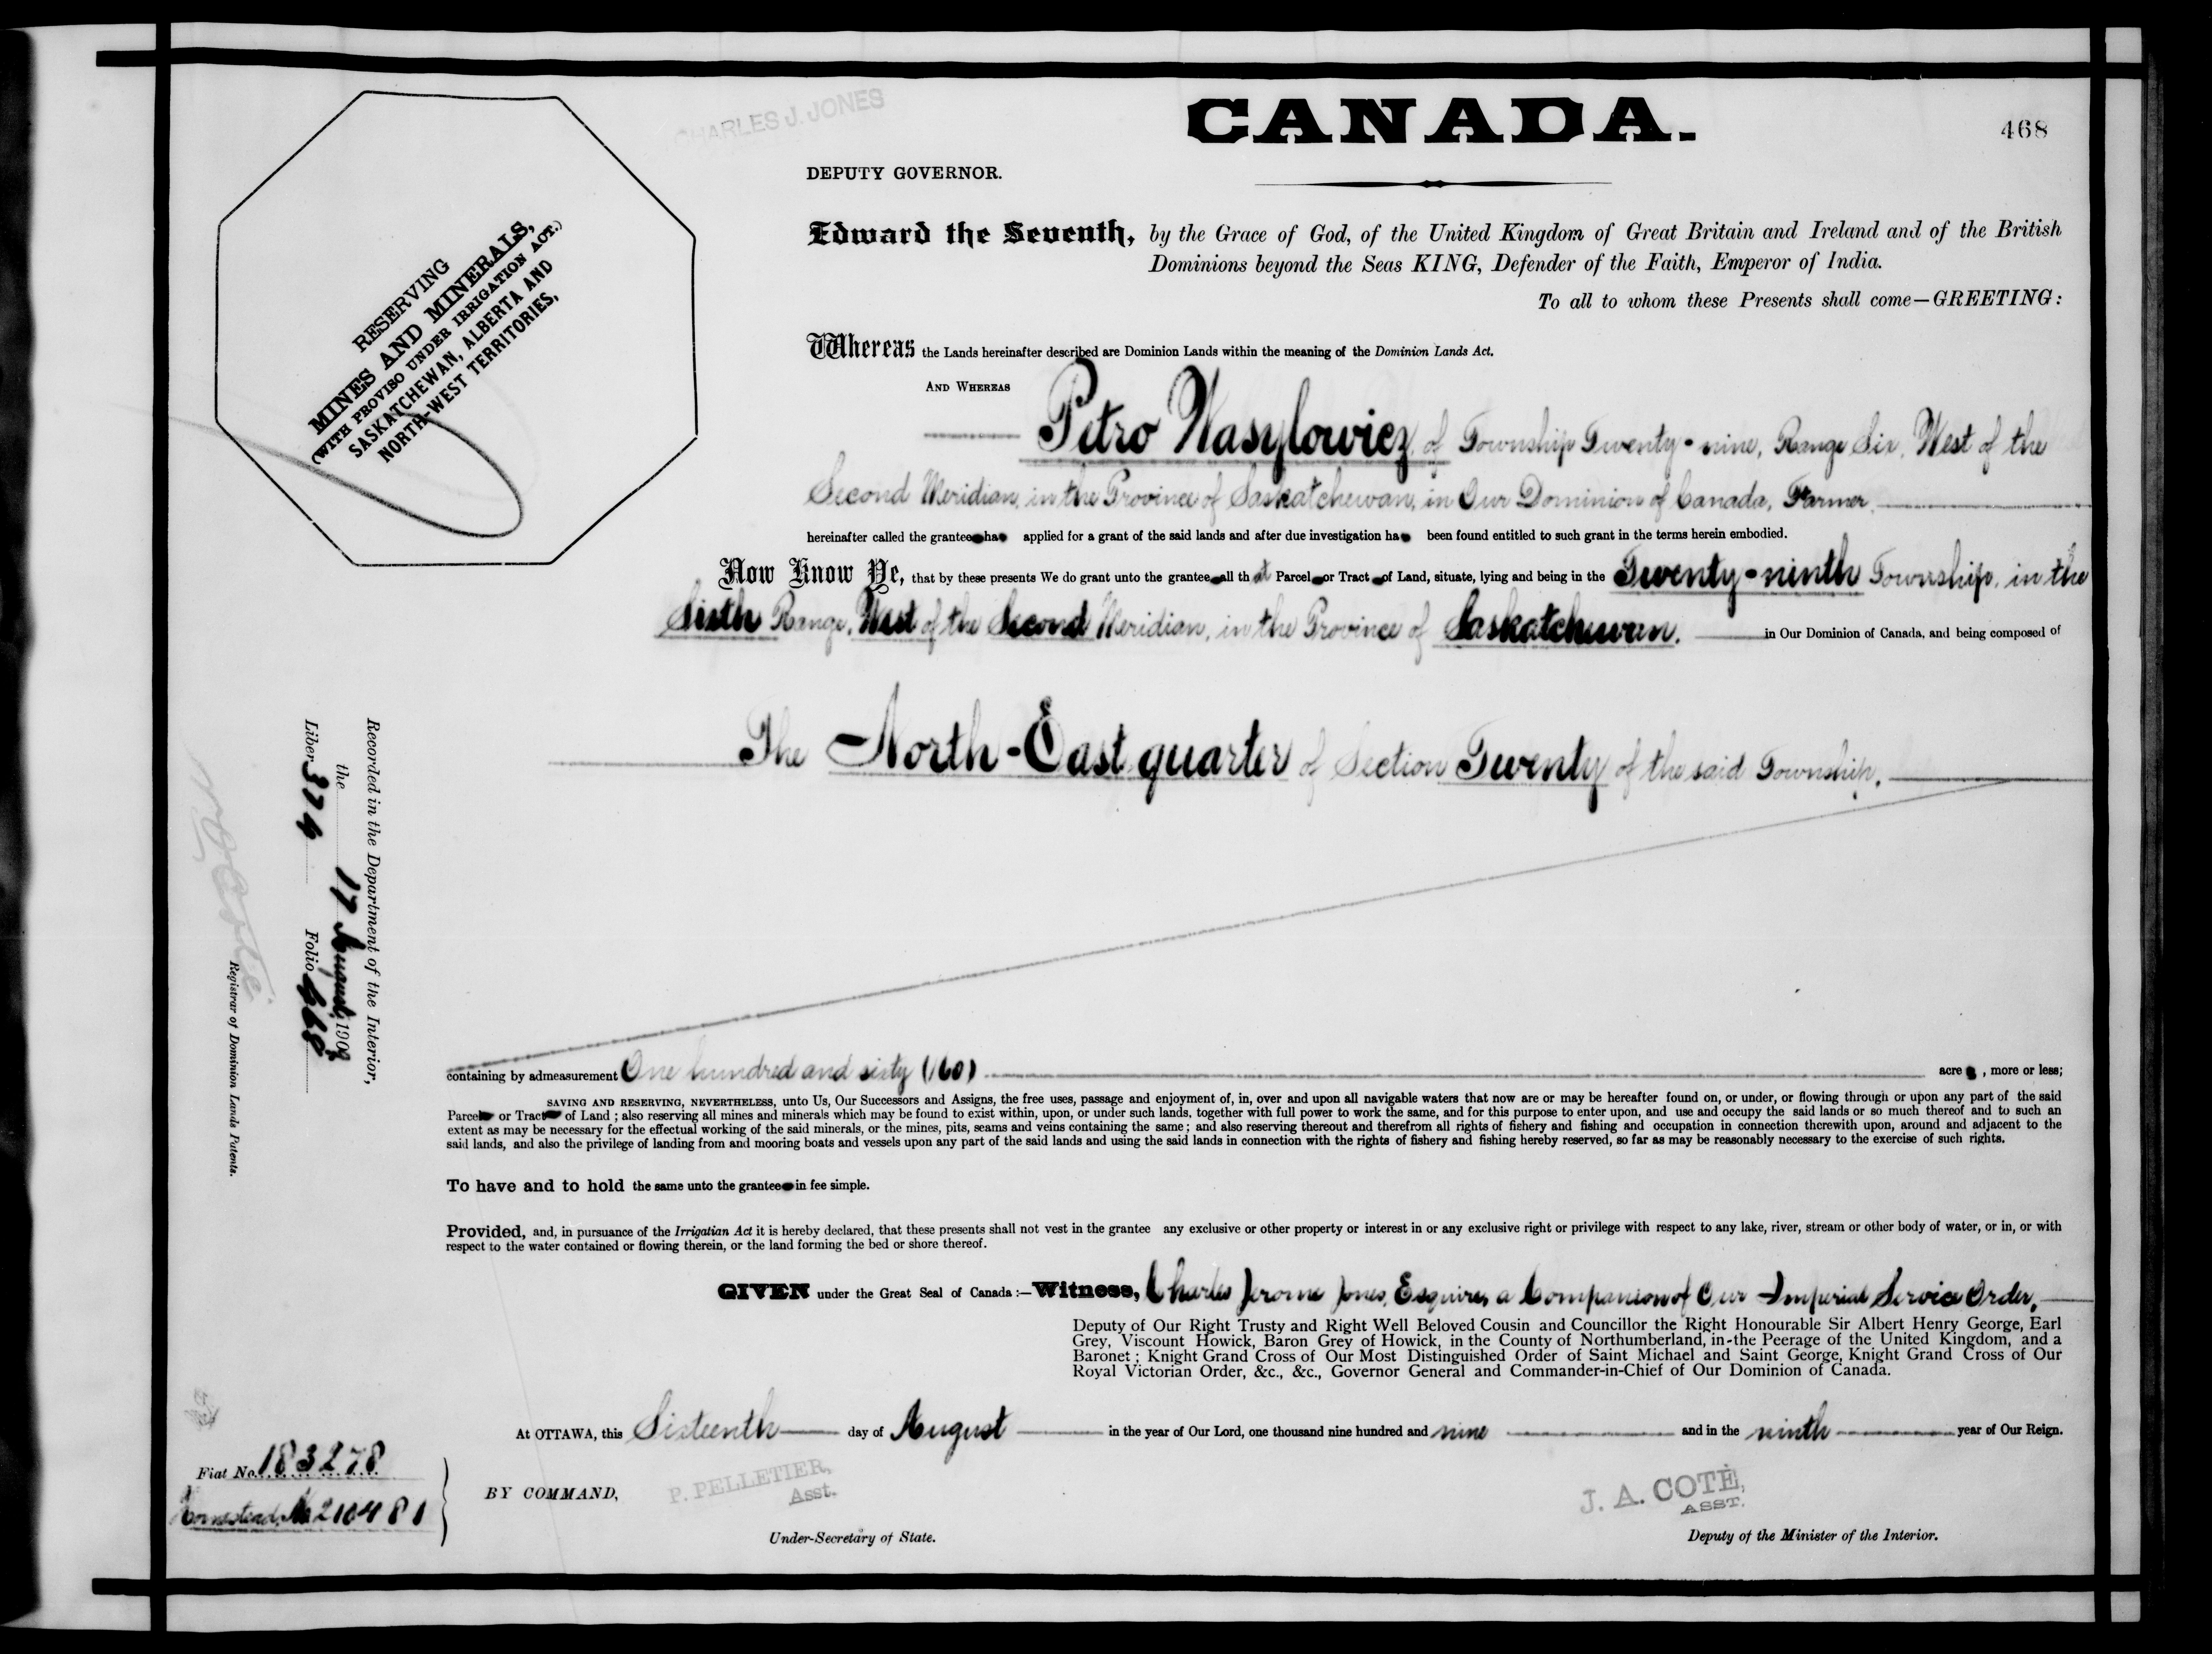 CHARLES J. JONES
CANADA.
468
DEPUTY GOVERNOR.
Edward the Seventh, by the Grace of God, of the United Kingdom of Great Britain and Ireland and of the British
Dominions beyond the Seas KING, Defender of the Faith, Emperor of India.
To all to whom these Presents shall come—GREETING:
RESERVING
MINES AND MINERALS,
(WITH PROVISO UNDER IRRIGATION ACT.)
SASKATCHEWAN, ALBERTA AND
NORTH-WEST TERRITORIES,
Whereas the Lands hereinafter described are Dominion Lands within the meaning of the Dominion Lands Act.
AND WHEREAS
Petro Wasylowicz, of Township Twenty-nine, Range Six, West of the
Second Meridian, in the Province of Saskatchewan, in Our Dominion of Canada, Farmer,
hereinafter called the grantee ha applied for a grant of the said lands and after due investigation ha been found entitled to such grant in the terms herein embodied.
Now Know Ye, that by these presents We do grant unto the grantee all that Parcel or Tract of Land, situate, lying and being in the Twenty-ninth Township, in the
Sixth Range, West of the Second Meridian, in the Province of Saskatchewan. in Our Dominion of Canada, and being composed of
The North-East quarter of Section Twenty of the said Township.
Recorded in the Department of the Interior,
the 17 August, 1909
Liber 374 Folio 468
Registrar of Dominion Lands Patents.
containing by admeasurement One hundred and sixty (160) acres, more or less;
SAVING AND RESERVING, NEVERTHELESS, unto Us, Our Successors and Assigns, the free uses, passage and enjoyment of, in, over and upon all navigable waters that now are or may be hereafter found on, or under, or flowing through or upon any part of the said
Parcel or Tract of Land; also reserving all mines and minerals which may be found to exist within, upon, or under such lands, together with full power to work the same, and for this purpose to enter upon, and use and occupy the said lands or so much thereof and to such an
extent as may be necessary for the effectual working of the said minerals, or the mines, pits, seams and veins containing the same; and also reserving thereout and therefrom all rights of fishery and fishing and occupation in connection therewith upon, around and adjacent to the
said lands, and also the privilege of landing from and mooring boats and vessels upon any part of the said lands and using the said lands in connection with the rights of fishery and fishing hereby reserved, so far as may be reasonably necessary to the exercise of such rights.
To have and to hold the same unto the grantee in fee simple.
Provided, and, in pursuance of the Irrigatian Act it is hereby declared, that these presents shall not vest in the grantee any exclusive or other property or interest in or any exclusive right or privilege with respect to any lake, river, stream or other body of water, or in, or with
respect to the water contained or flowing therein, or the land forming the bed or shore thereof.
GIVEN under the Great Seal of Canada:—Witness, Charles Jerome Jones, Esquire, a Companion of Our Imperial Service Order,
Deputy of Our Right Trusty and Right Well Beloved Cousin and Councillor the Right Honourable Sir Albert Henry George, Earl
Grey, Viscount Howick, Baron Grey of Howick, in the County of Northumberland, in-the Peerage of the United Kingdom, and a
Baronet; Knight Grand Cross of Our Most Distinguished Order of Saint Michael and Saint George, Knight Grand Cross of Our
Royal Victorian Order, &c., &c., Governor General and Commander-in-Chief of Our Dominion of Canada.
At OTTAWA, this Sixteenth day of August in the year of Our Lord, one thousand nine hundred and nine and in the ninth year of Our Reign.
Fiat No. 183278
Homestead No 210481
BY COMMAND,
P. PELLETIER,
Asst.
Under-Secretary of State.
J. A. COTÉ,
ASST.
Deputy of the Minister of the Interior.